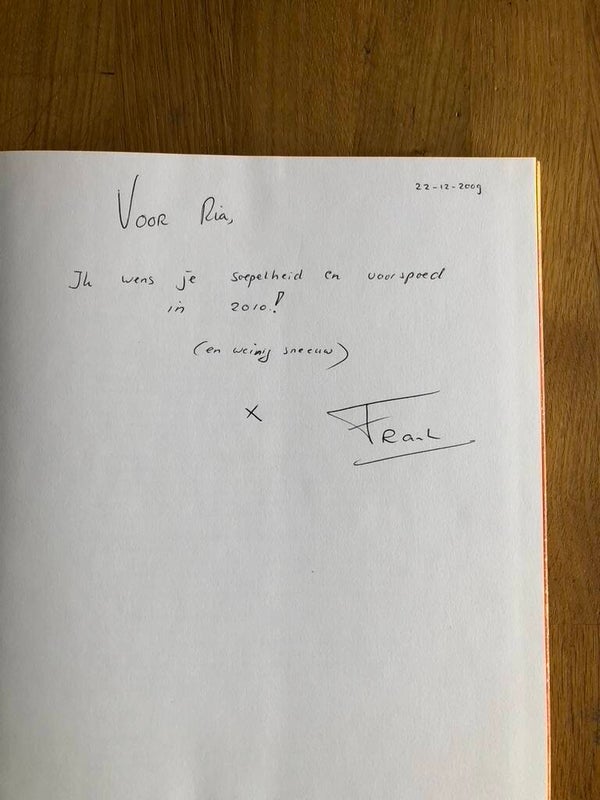 22-12-2009
Voor Ria,
Ik wens je soepelheid en voorspoed
in 2010!
(en weinig sneeuw)
x Frank